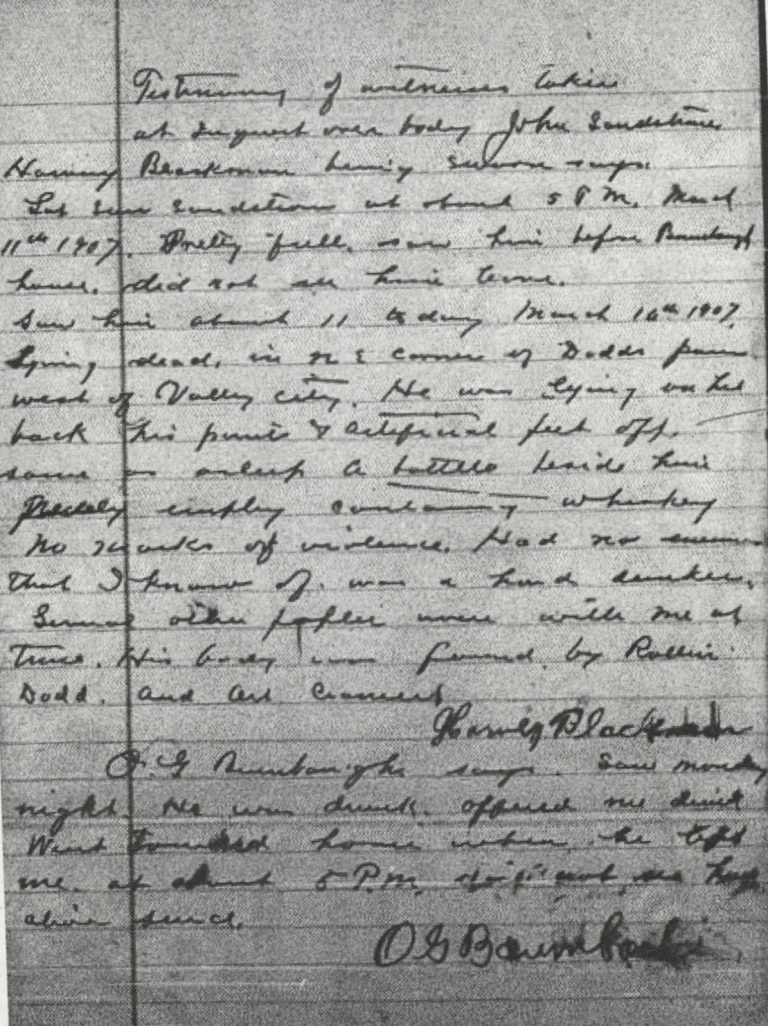 Testimony of witnesses taken
at Inquest over body John Sandstrom
Harvey Blackman being sworn says
Last saw Sandstrom at about 5 P.M. March
11th 1907. Pretty full. saw him before
house. did not see him leave.
Saw him about 11 today March 16th 1907.
Lying dead, in N E corner of Dodds farm
west of Valley City. He was lying on his
back his pants & artificial feet off.
same as asleep A bottle beside him
empty containing whiskey
No marks of violence. Had no enemies
that I know of. was a hard drinker.
Several other people were with me at
time. His body was found by Rollin
Dodd. And Art
Harvey Blackman
O. G Baumbaugh says. Saw monday
night. He was drunk. offered me drink
Went toward home when he left
me. at about 5 P.M. did not see him
alive since.
O G Baumbaugh